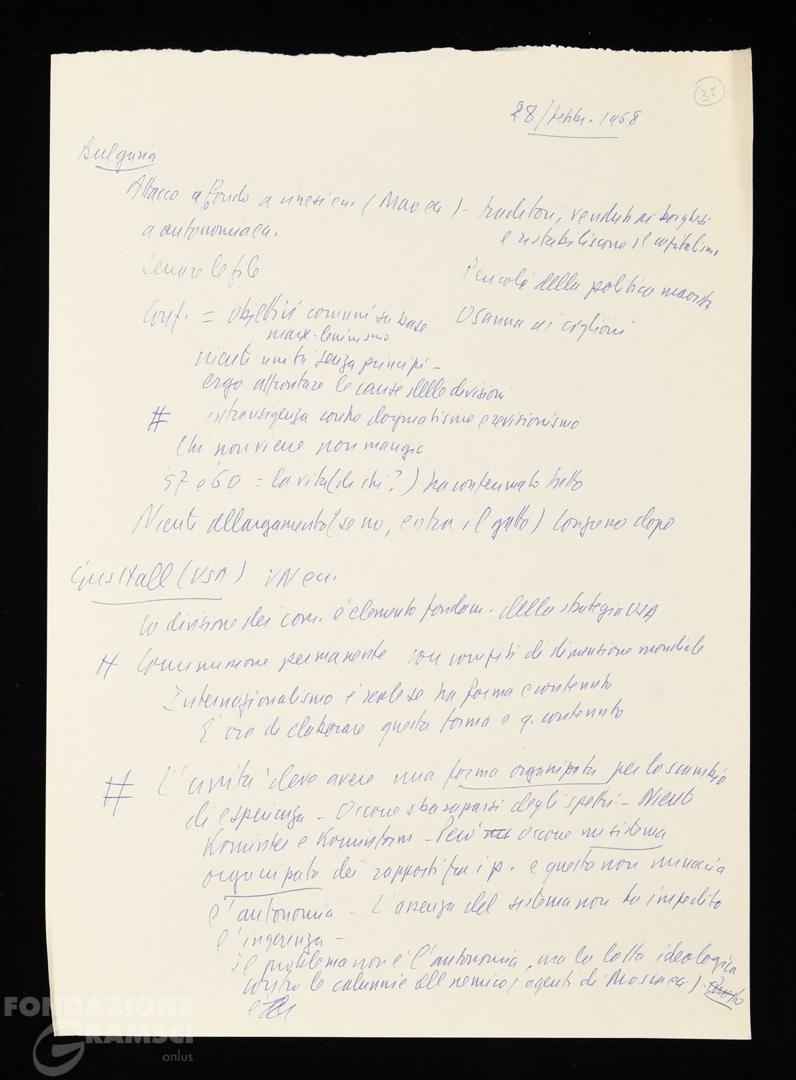 35
28/settbr. 1968
Bulgaria
Attacco a fondo a cinesi ecc. (Mao ecc.) - traditori, venduti ai borghesi
a autonomia ecc. e ristabiliscono il capitalismo
Serrare le file Pericolo della politica maoista
Conf. = obiettivi comuni su base Osanna ai
marx-leninismo
niente unità senza principi -
ergo affrontare le cause delle divisioni
# intransigenza contro dogmatismo e revisionismo
Chi non viene non mangia
57 e 60 = la vita (di chi?) ha confermato tutto
Niente allargamento (se no, entra il gatto) Congresso dopo
Gus Hall (USA) VN ecc.
la divisione dei com. è elemento fondam. della strategia USA
# Commissione permanente con compiti di dimensione mondiale
Internazionalismo è reale se ha forma e contenuto
È ora di elaborare questa forma e q. contenuto
# L'unità deve avere una forma organizzata per lo scambio
di esperienza - Occorre sbarazzarsi degli spettri - Niente
Komintern e Kominform - Però occorre un sistema
organizzato dei rapporti fra i p. e questo non minaccia
l'autonomia - L'assenza del sistema non ha impedito
l'ingerenza -
Il problema non è l'autonomia, ma la lotta ideologica
contro le calunnie del nemico (agenti di Mosca ecc.)
FONDAZIONE
GRAMSCI
onlus